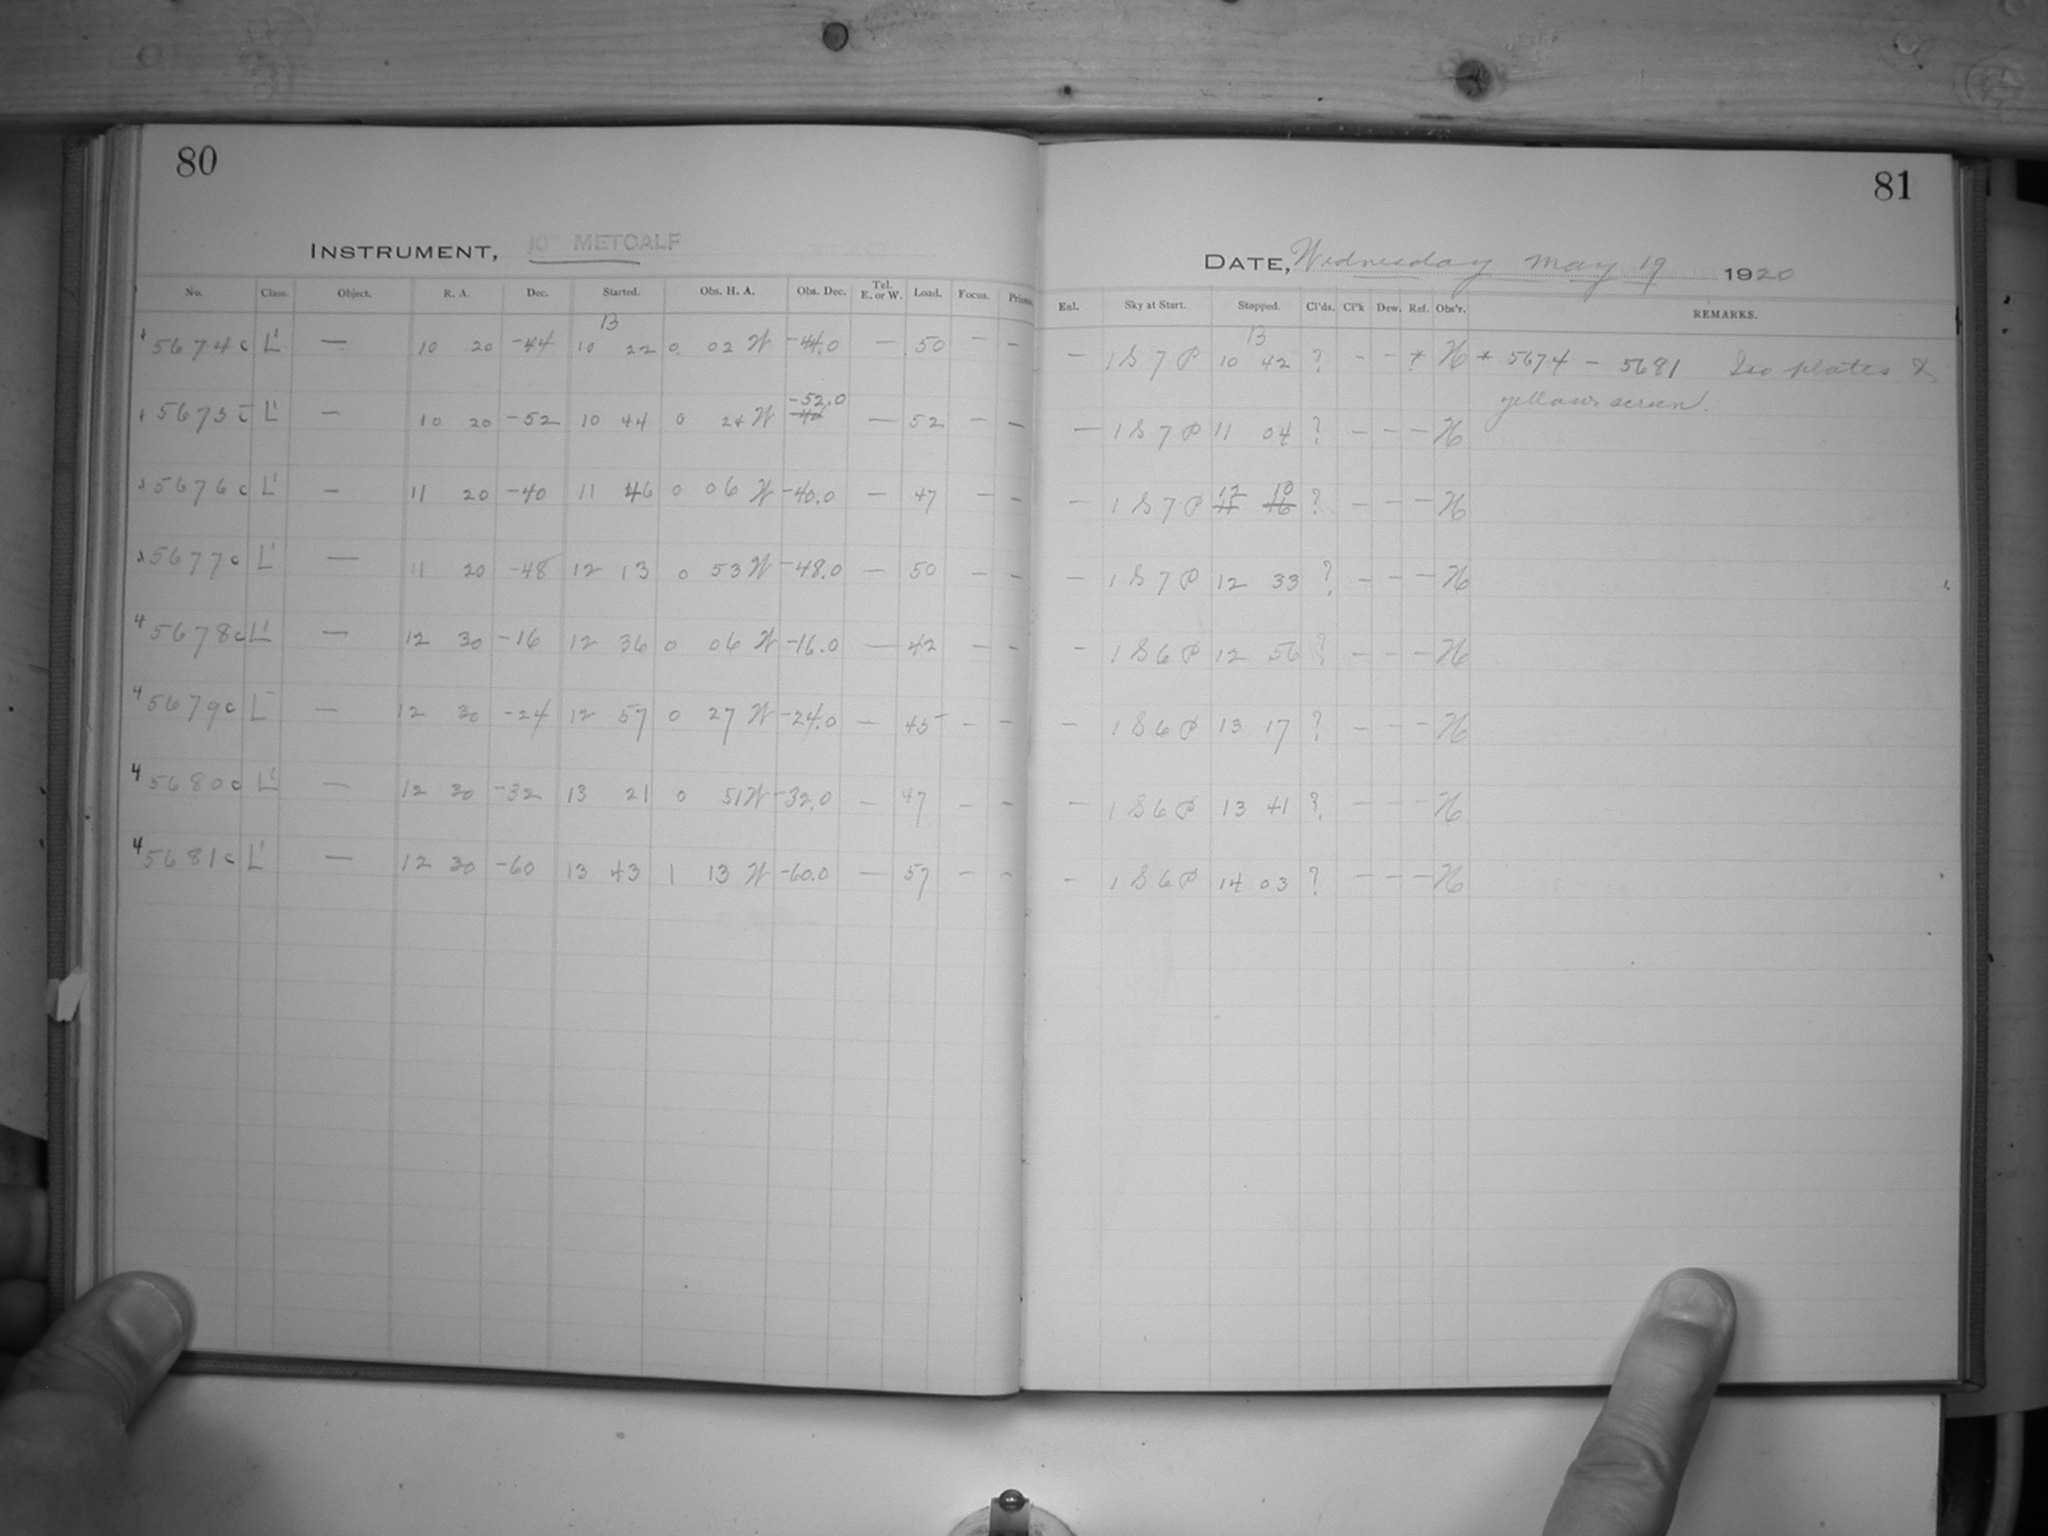 80
INSTRUMENT, 10" METCALF
No. Class. Object. R. A. Dec. Started. Obs. H. A. Obs. Dec. Tel. E. or W. Load. Focus. Prism.
B
5674 c L' — 10 20 -44 10 22 0 02 W -44.0 — 50 - -
-52.0
5675 c L' — 10 20 -52 10 44 0 24 W — 52 - -
5676 c L' — 11 20 -40 11 46 0 06 W -40.0 — 47 - -
5677 c L' — 11 20 -48 12 13 0 53 W -48.0 — 50 - -
4 5678 c L' — 12 30 -16 12 36 0 06 W -16.0 — 42 - -
4 5679 c L' — 12 30 -24 12 57 0 27 W -24.0 — 45 - -
4 5680 c L' — 12 30 -32 13 21 0 51 W -32.0 — 47 - -
4 5681 c L' — 12 30 -60 13 43 1 13 W -60.0 — 57 - -
81
DATE, Wednesday May 19 1920
Enl. Sky at Start. Stopped. Cl'ds. Cl'k Dew. Ref. Obs'r. REMARKS.
B
— 1 S 7 P 10 42 ? - - * H * 5674 - 5681 Iso plates &
yellow screen.
— 1 S 7 P 11 04 ? - - - H
12 10
— 1 S 7 P 11 16 ? - - - H
— 1 S 7 P 12 33 ? - - - H
- 1 S 6 P 12 56 ? - - - H
— 1 S 6 P 13 17 ? - - - H
— 1 S 6 P 13 41 ? - - - H
- 1 S 6 P 14 03 ? - - - H